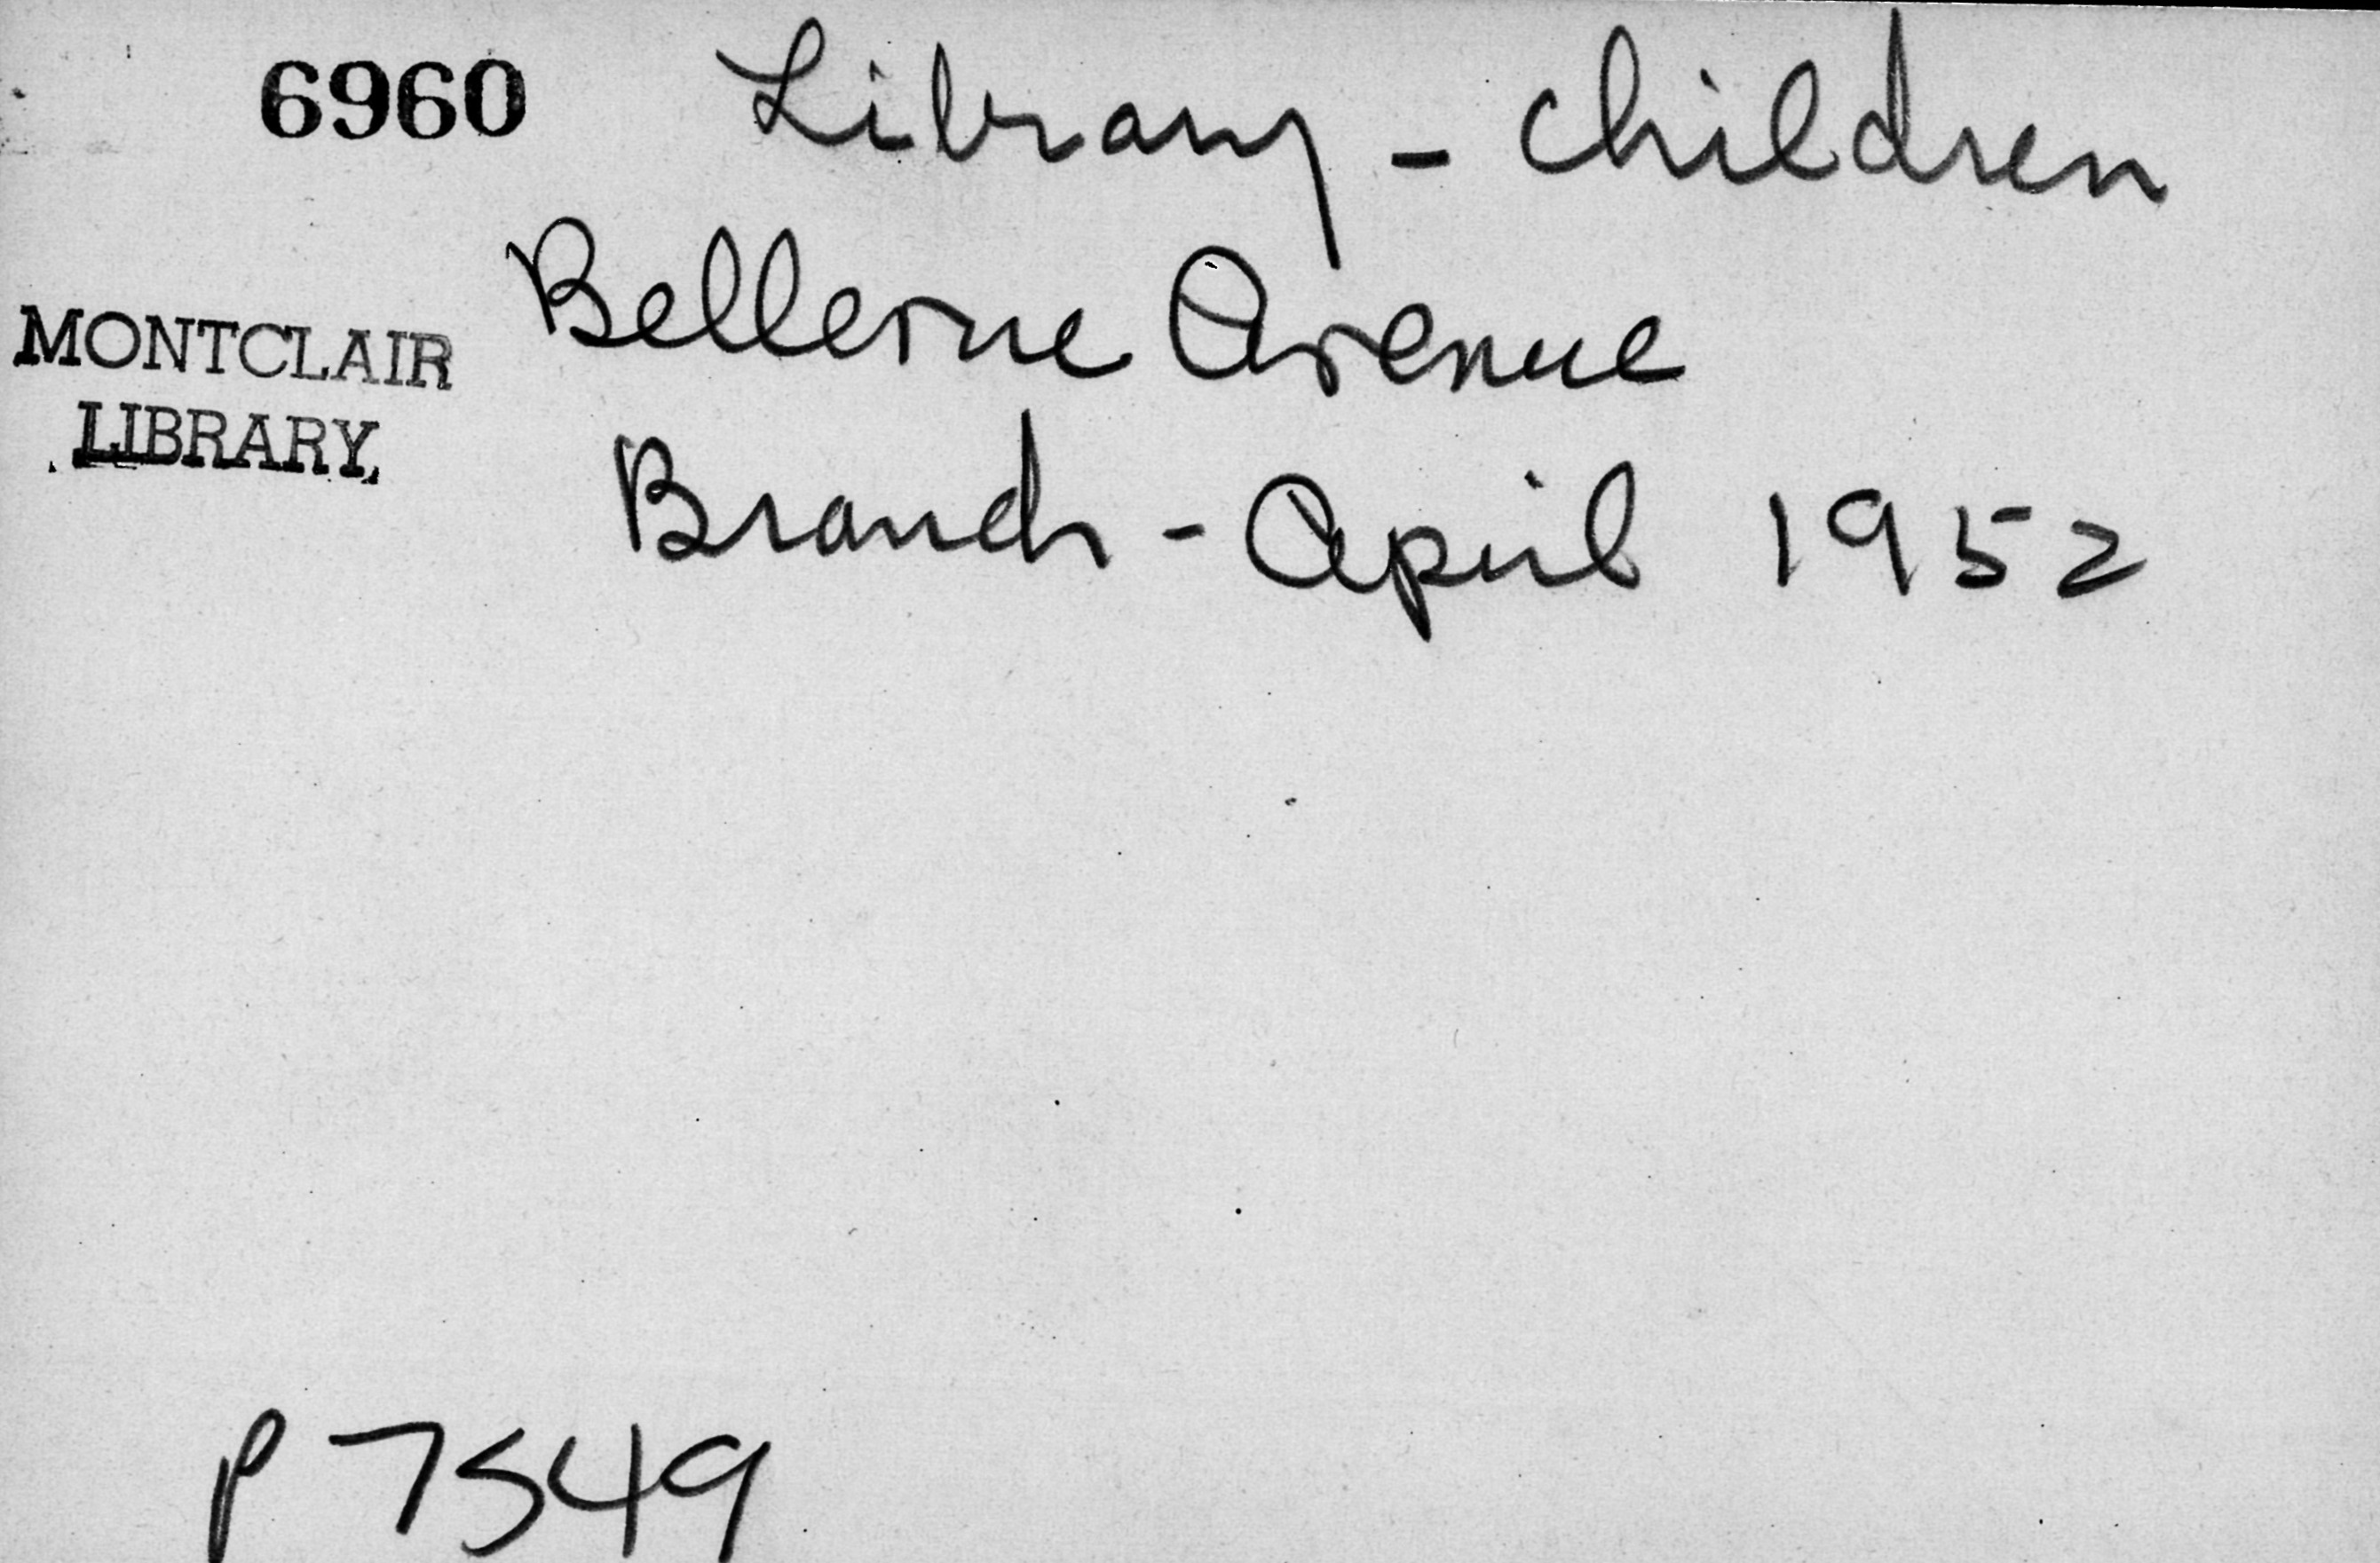 6960 Library - Children
Bellevue Avenue
MONTCLAIR
LIBRARY
Branch - April 1952
P 7549